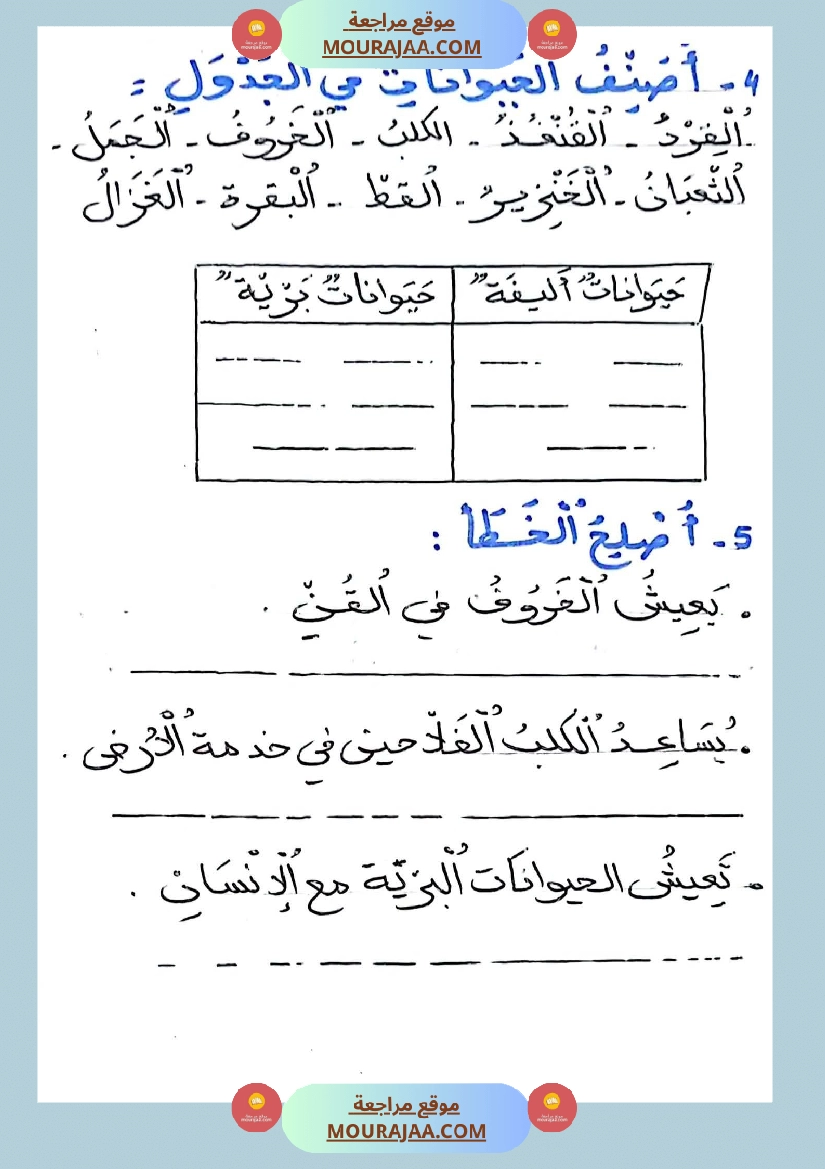 موقع مراجعة
MOURAJAA.COM
4 - أُصَنِّفُ الْحَيَوَانَاتِ فِي الْجَدْوَلِ :
اُلْقِرْدُ - اُلْقُنْفُذُ - الكلبُ - اُلْخَرُوفُ - اُلْجَمَلُ -
اُلثُّعْبَانُ - اُلْخَنْزِيرُ - اُلقطّ - اُلْبقرة - اُلْغَزَالُ
حَيَوَانَاتٌ أَليفَة" حَيَوانَاتٌ بَرِّيَّة"
5 - أُصْلِحُ اُلْخَطَأَ :
• يَعِيشُ اُلْخَرُوفُ فِي اُلْقُنِّ .
• يُسَاعِدُ اُلْكلبُ اُلْفَلاَّحين في خدمة اُلْأَرْض .
• تَعِيشُ الحيوانَات اُلْبَرِّيَّة مع اُلْإِنْسَانِ .
موقع مراجعة
MOURAJAA.COM